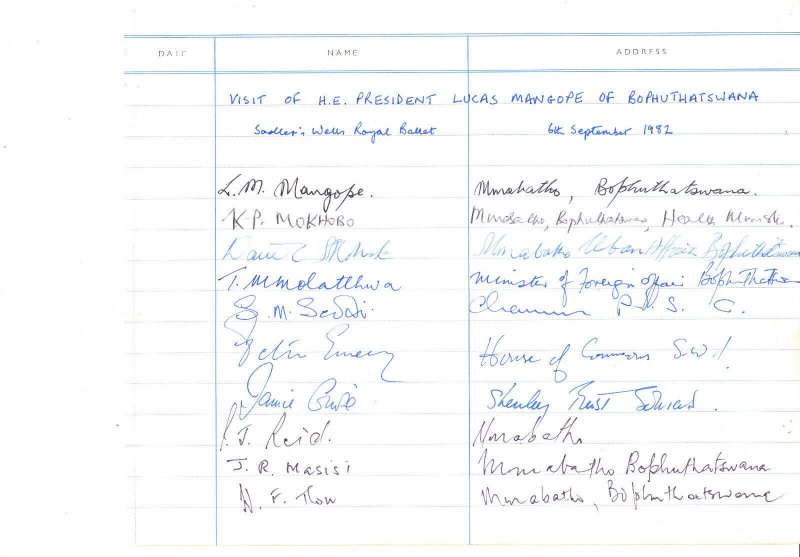 DATE NAME ADDRESS
VISIT OF H.E. PRESIDENT LUCAS MANGOPE OF BOPHUTHATSWANA
Sadler's Wells Royal Ballet 6th September 1982
L. M. Mangope. Mmabatho, Bophuthatswana.
K.P. MOKHOBO Mmabatho, Bophuthatswana, Health Minister.
David Mmabatho Urban Affairs Bophuthatswana
T. M. Molatlhwa Minister of Foreign affair Bophuthatswana
S. M. Seodi. Chairman P. S. C.
Peter Emery House of Commons S.W.1
Jamie Stenley Trust
P. J. Reid. Mmabatho
J. R. Masisi Mmabatho Bophuthatswana
N. F. Mmabatho, Bophuthatswana